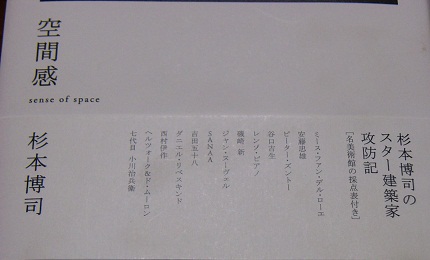 空間感
sense of space
杉本博司
杉本博司の
スター建築家
攻防記
[名美術館の採点表付き]
ミース・ファン・デル・ローエ
安藤忠雄
ピーター・ズントー
谷口吉生
レンゾ・ピアノ
磯崎 新
ジャン・ヌーヴェル
SANAA
吉田五十八
ダニエル・リベスキンド
西村伊作
ヘルツォーク&ド・ムーロン
七代目 小川治兵衛